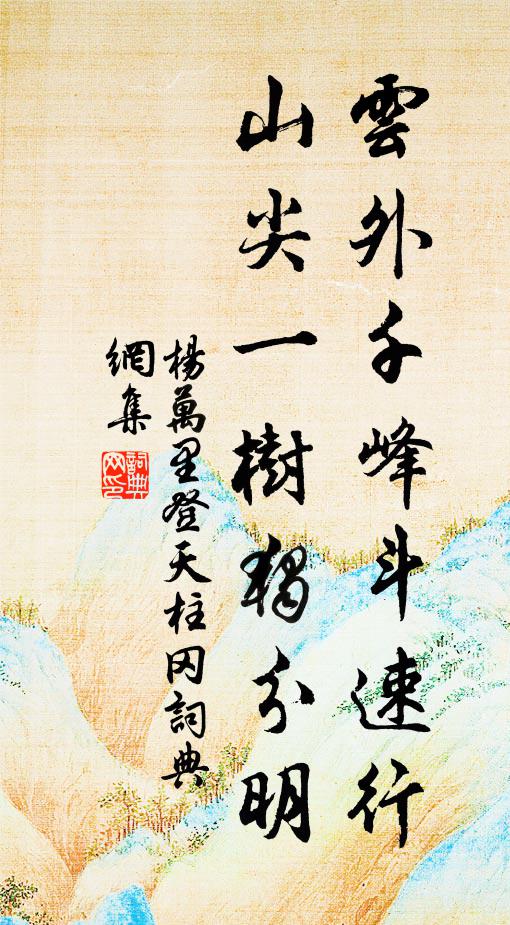 雲外千峰斗速行
山尖一樹獨分明
楊萬里登天柱冈詞典
網集
詞典
网印